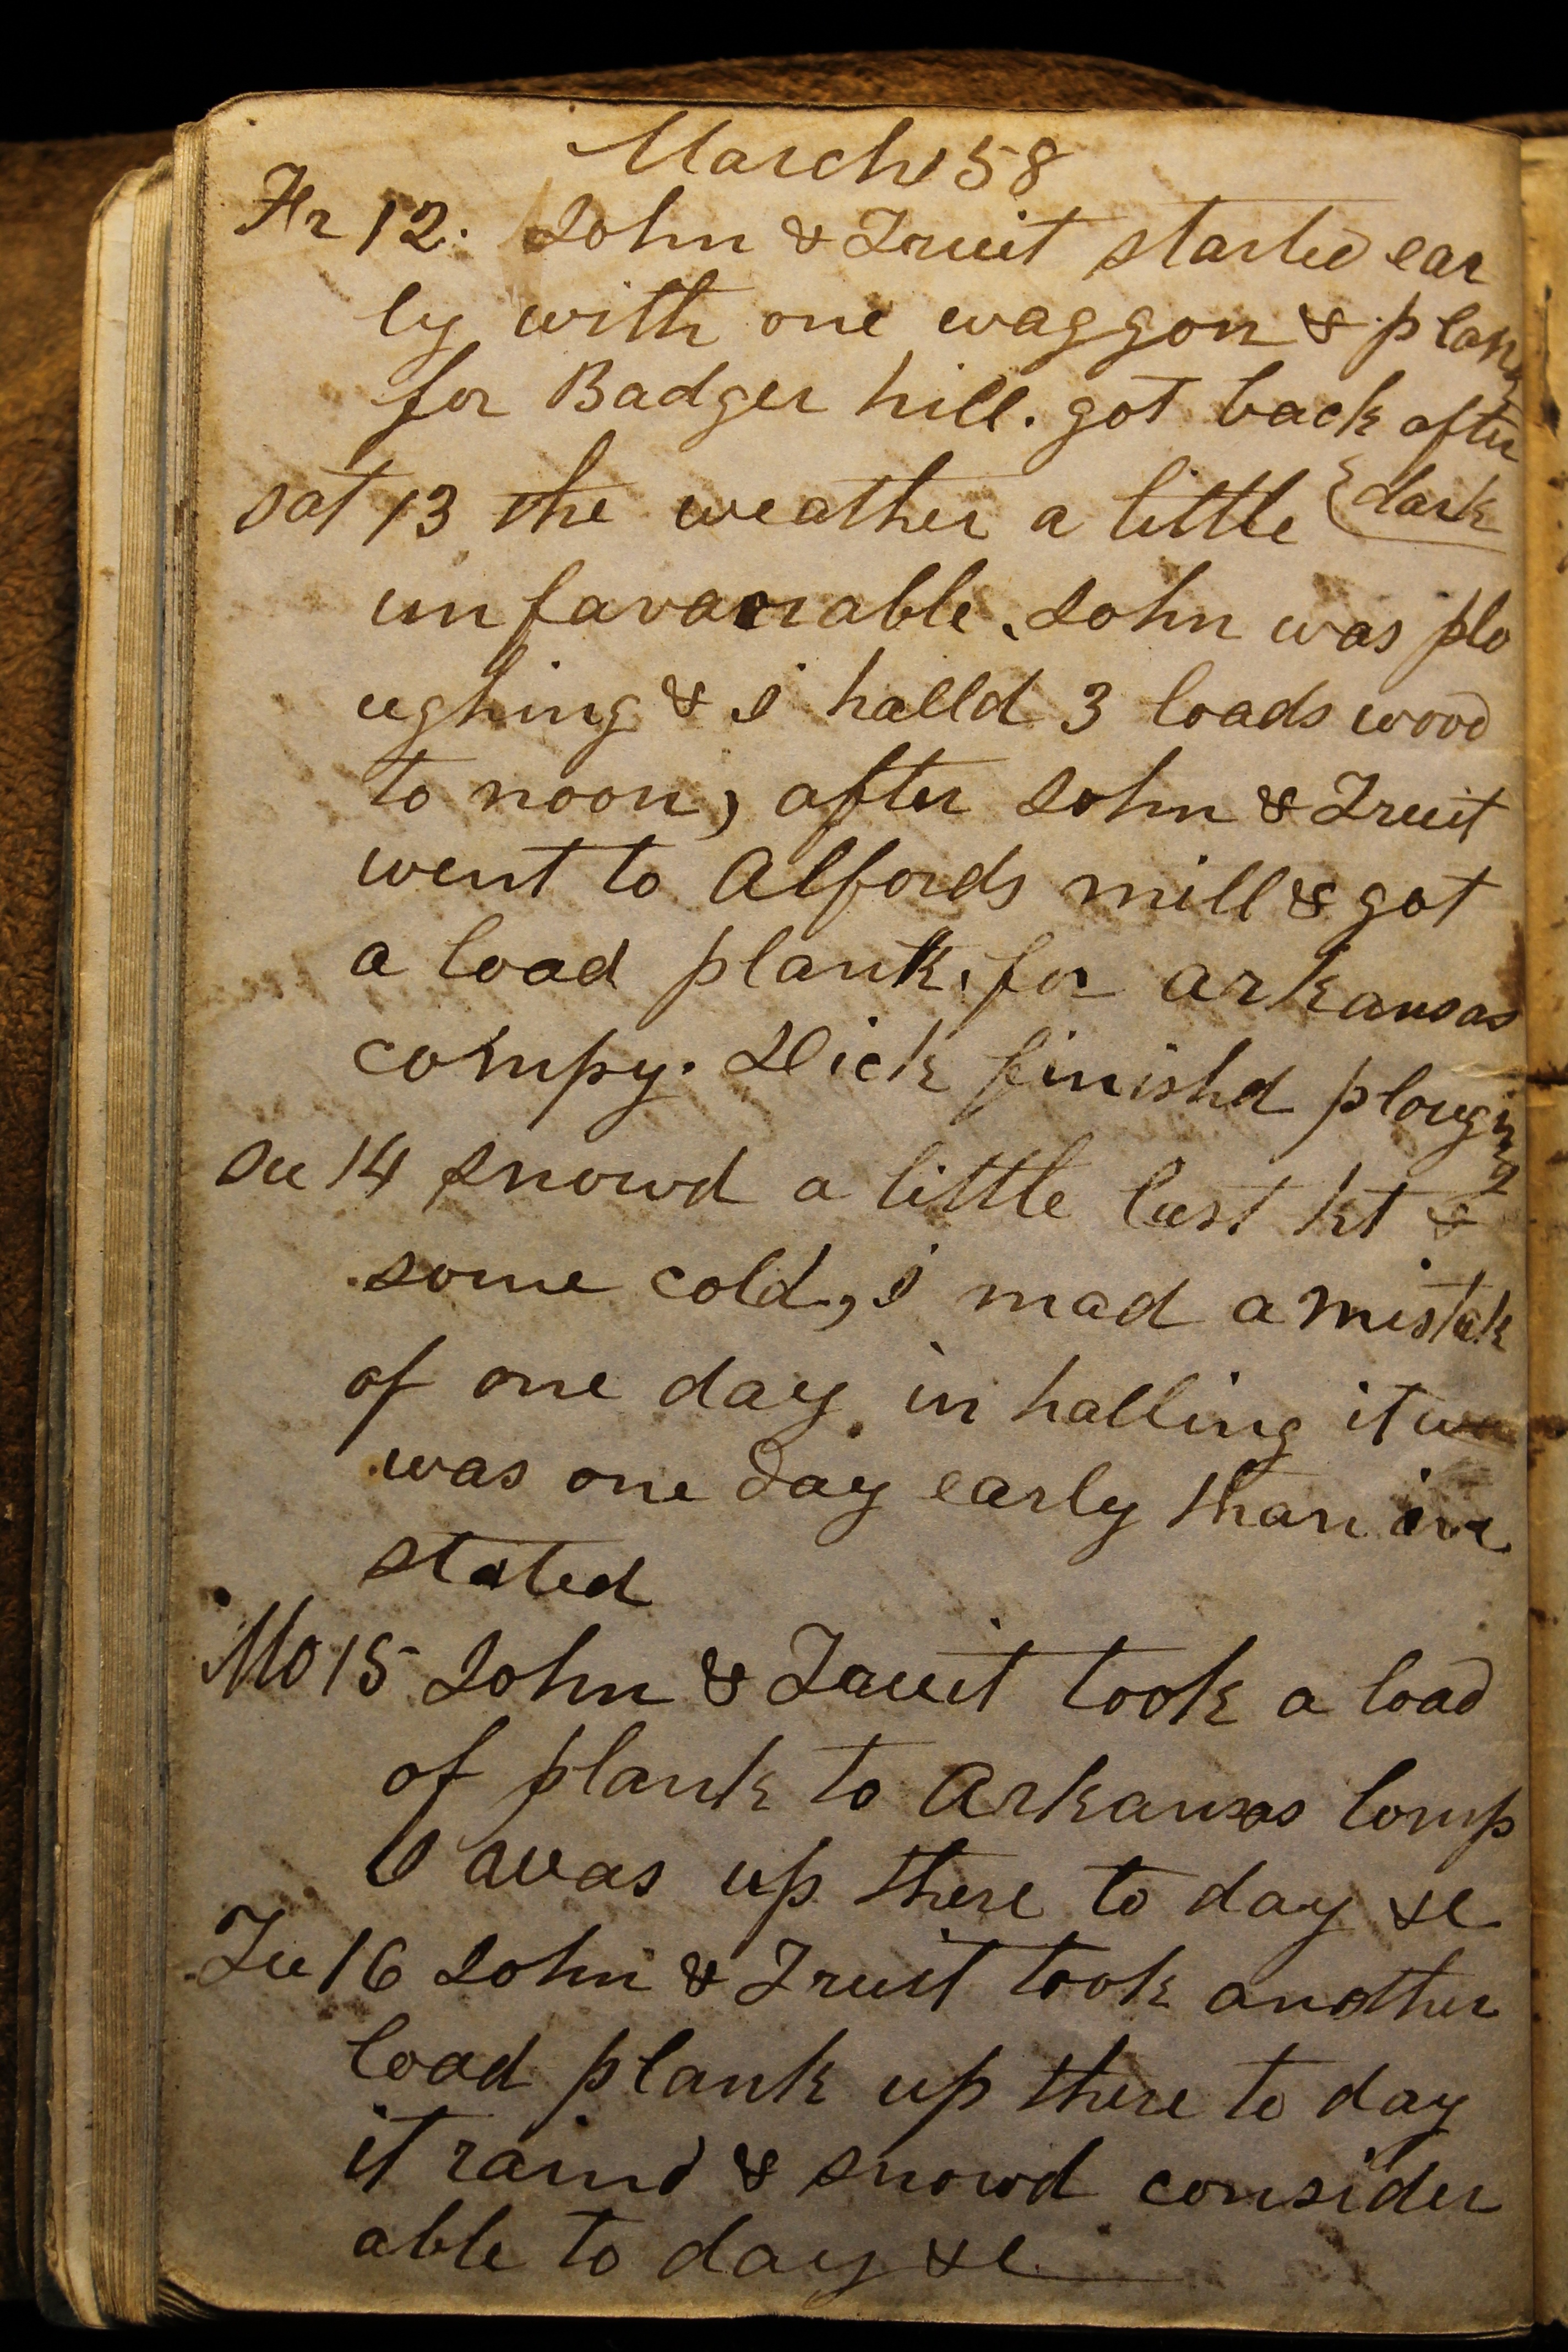 March 58
Fr 12. John & Truit started ear
ly with one waggon & plank
for Badger hill. got back after
{dark
Sat 13 the weather a little
unfavarable. John was plo
ughing & I halld 3 loads wood
to noon, after John & Truit
went to Alfords mill & got
a load plank. for arkansas
compy. Dick finishd plouging
Su 14 snowd a little last nt &
some cold, I mad a mistak
of one day in halling it
was one day early than ive
stated
Mo 15 John & Truit took a load
of plank to Arkansas Comp
was up there to day &c
Tu 16 John & Truit took another
load plank up there to day
it raind & snowd consider
able to day &c